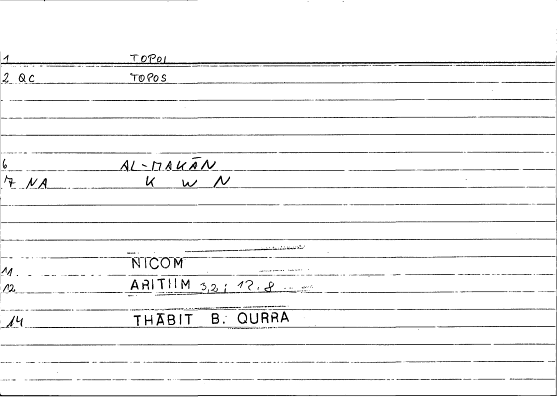 1 TOPOI
2 QC TOPOS
6 AL-MAKĀN
7 NA K W N
11. NICOM
12. ARITIIM 3,2; 17.8
14 THĀBIT B. QURRA